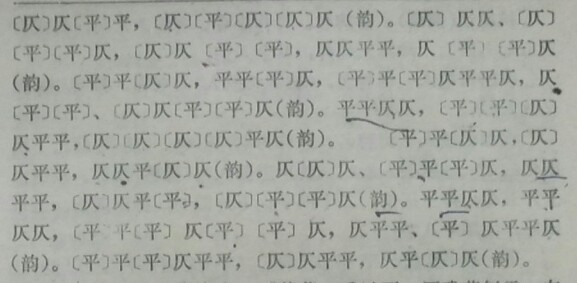 〔仄〕仄〔平〕平，〔仄〕〔平〕〔仄〕〔仄〕仄（韵）。〔仄〕仄仄、〔仄〕
〔平〕〔平〕仄，〔仄〕仄〔平〕〔平〕，仄仄平平，仄〔平〕〔平〕仄
（韵）。〔平〕平〔仄〕仄，平平〔平〕仄，〔平〕平〔平〕仄平平仄，仄
〔平〕〔平〕、〔仄〕仄〔平〕〔平〕仄（韵）。平平仄仄，〔平〕〔平〕〔仄〕
仄平平，〔仄〕〔仄〕〔仄〕〔仄〕平仄（韵）。　〔平〕平〔仄〕仄，〔仄〕
仄平平，仄仄平〔仄〕仄（韵）。仄〔仄〕仄、〔平〕平〔平〕仄，仄仄
平平，〔仄〕仄平〔平〕，〔仄〕〔平〕〔平〕仄（韵）。平平仄仄，平平
仄仄，〔平〕平〔平〕仄〔平〕〔平〕仄，仄平平、〔平〕仄平平仄
（韵）。〔平〕平〔平〕仄平平，〔仄〕仄平平，仄平〔仄〕仄（韵）。